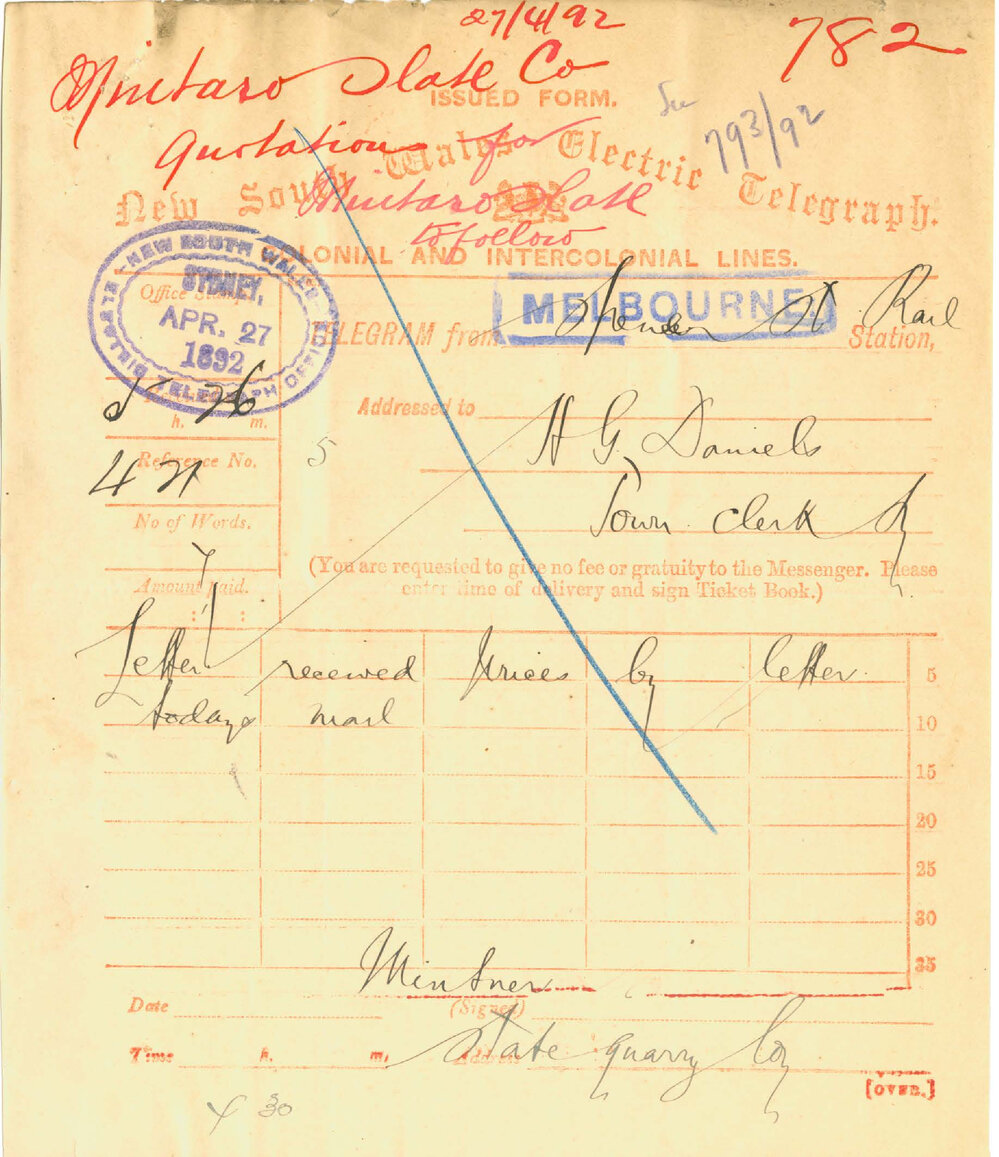 27/4/92
782
Mintaro Slate Co
ISSUED FORM.
See 793/92
Quotation for
New South Wales Electric Telegraph.
Mintaro Slate
to follow
COLONIAL AND INTERCOLONIAL LINES.
NEW SOUTH WALES
ELECTRIC TELEGRAPH OFFICE
SYDNEY.
APR. 27
1892
Office Stamp.
MELBOURNE
TELEGRAM from Spencer St Rail Station,
26
h. m.
Addressed to H G. Daniels
Reference No.
5
Town clerk Sy
No of Words.
7
(You are requested to give no fee or gratuity to the Messenger. Please
enter time of delivery and sign Ticket Book.)
Amount paid.
: :
Letter received prices by letter 5
todays mail 10
15
20
25
30
35
Mintner
Date (Signed)
State quarry Coy
Time h. m. Address
[OVER.]
30